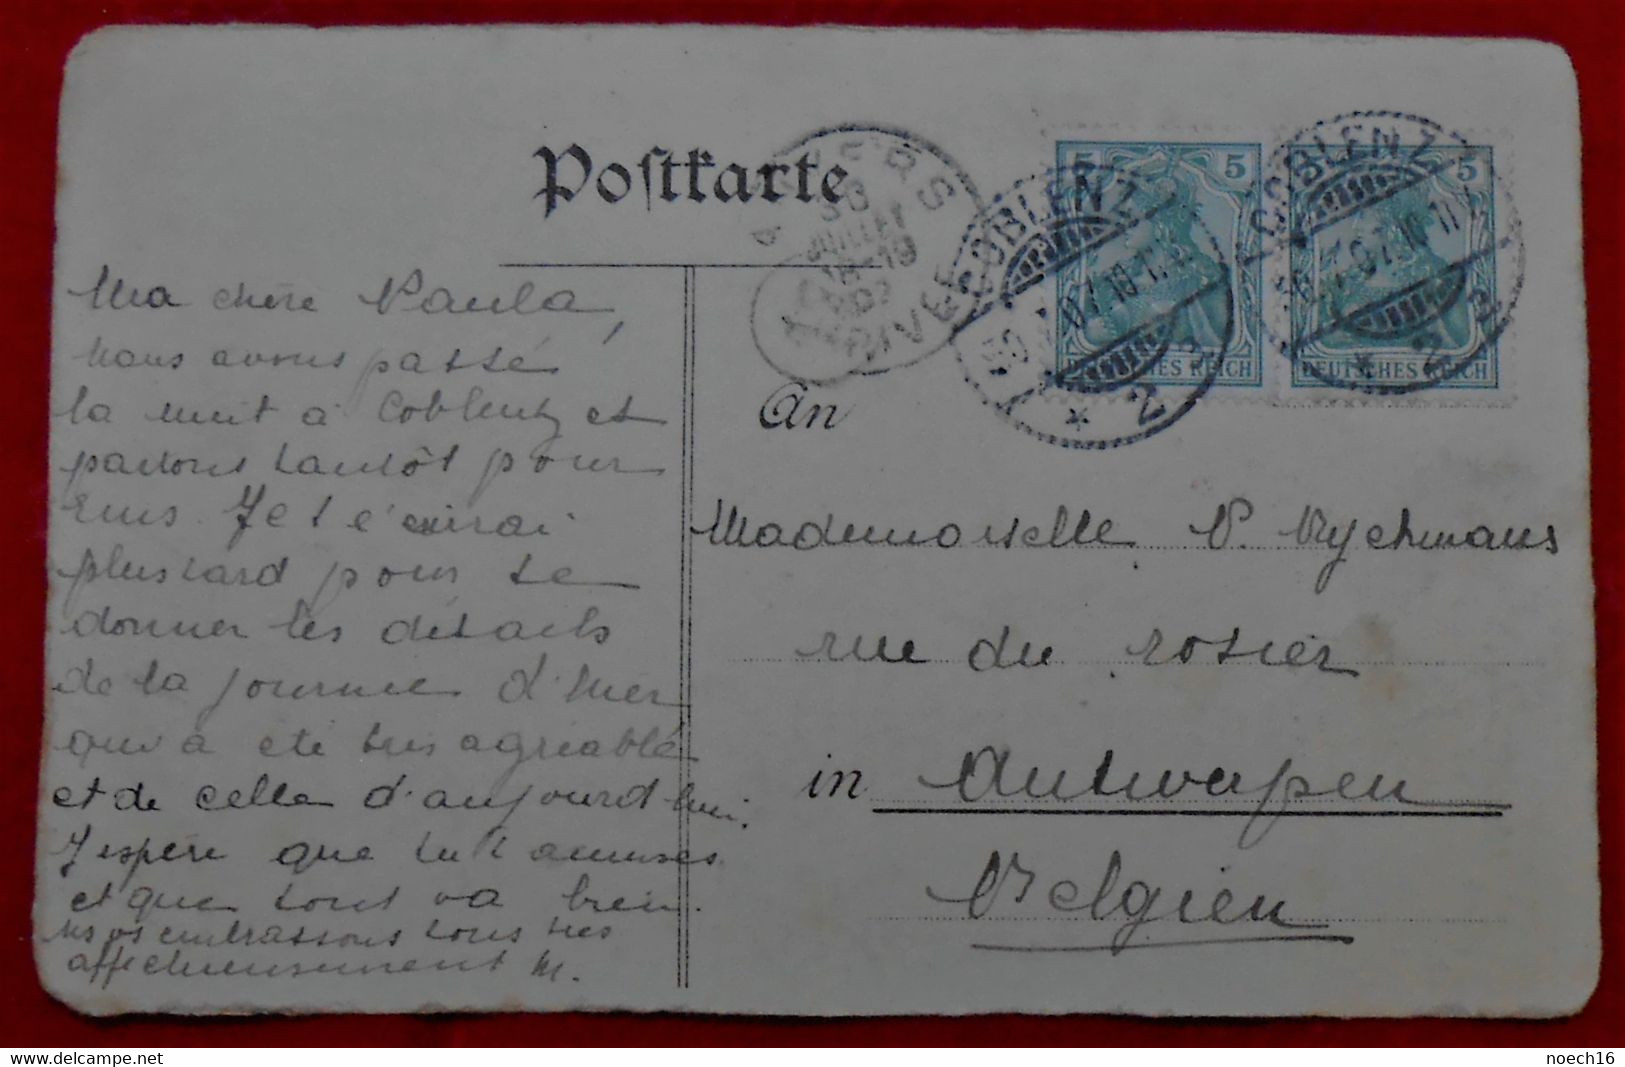 Postkarte
ANVERS
JUILLET
18-19
ARRIVEE
COBLENZ
.07.10-11
* 2 a
COBLENZ
.07.10-11
* 2 a
5 5
DEUTSCHES REICH
5
DEUTSCHES REICH
Ma chère Paula,
nous avons passé
la nuit à Coblentz et
partons tantôt pour
Ems. Je t'écrirai
plus tard pour te
donner les détails
de la journée d'hier
qui a été très agréable
et de celle d'aujourd'hui.
J'espère que tu t'amuses
et que tout va bien.
embrassons tous très
affectueusement M.
An
Mademoiselle P. Ryckmans
rue du rosier
in Antwerpen
Belgien
noech16